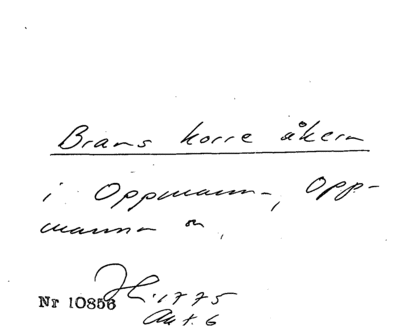 Brams korre åkern
i Oppmanna, Opp-
manna sn,
Nr 10856
H: 1775
Akt. 6